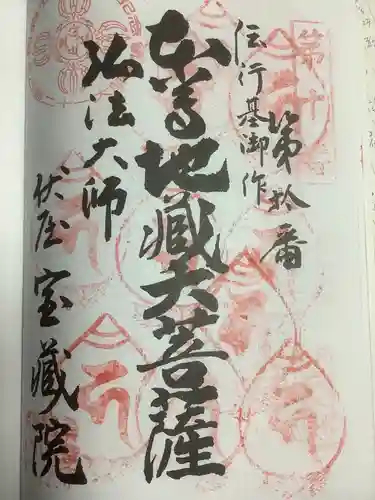 伝行基御作
第拾番
本尊地蔵大菩薩
弘法大師
伏屋
宝蔵院